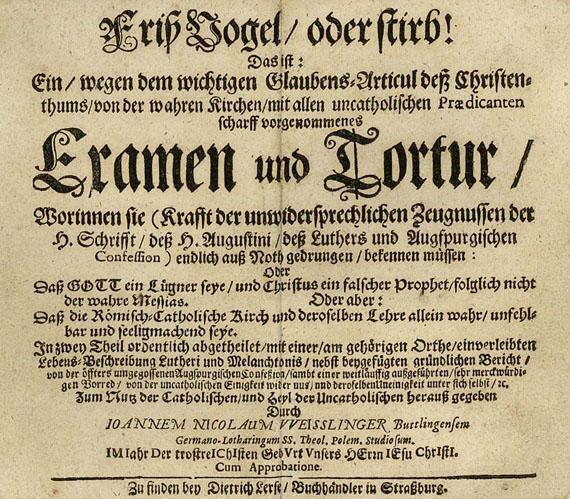 Friß Vogel / oder stirb!
Das ist:
Ein / wegen dem wichtigen Glaubens-Articul deß Christen-
thums / von der wahren Kirchen / mit allen uncatholischen Prædicanten
scharff vorgenommenes
Examen und Tortur /
Worinnen sie (Krafft der unwidersprechlichen Zeugnussen der
H. Schrifft / deß H. Augustini / deß Luthers und Augspurgischen
Confession) endlich auß Noth gedrungen / bekennen müssen:
Oder
Daß GOTT ein Lügner seye / und Christus ein falscher Prophet / folglich nicht
der wahre Messias. Oder aber:
Daß die Römisch-Catholische Kirch und deroselben Lehre allein wahr / unfehl-
bar und seeligmachend seye.
In zwey Theil ordentlich abgetheilet / mit einer / am gehörigen Orthe / einverleibten
Lebens-Beschreibung Lutheri und Melanchtonis / nebst beygefügten gründlichen Bericht /
von der öffters umgegossenen Augspurgischen Confeßion / sambt einer weitläuffig außgeführten / sehr merckwürdi-
gen Vorred / von der uncatholischen Einigkeit wider uns / und deroselben Uneinigkeit unter sich selbst / ꝛc.
Zum Nutz der Catholischen / und Heyl der Uncatholischen herauß gegeben
Durch
IOANNEM NICOLAUM VVEISSLINGER Buttlingensem
Germano-Lotharingum SS. Theol. Polem. Studiosum.
IM Iahr Der trostreIChIsten GebVrt Vnsers HErrn IEsu ChrIstI.
Cum Approbatione.
Zu finden bey Dietrich Lerse / Buchhändler in Straßburg.